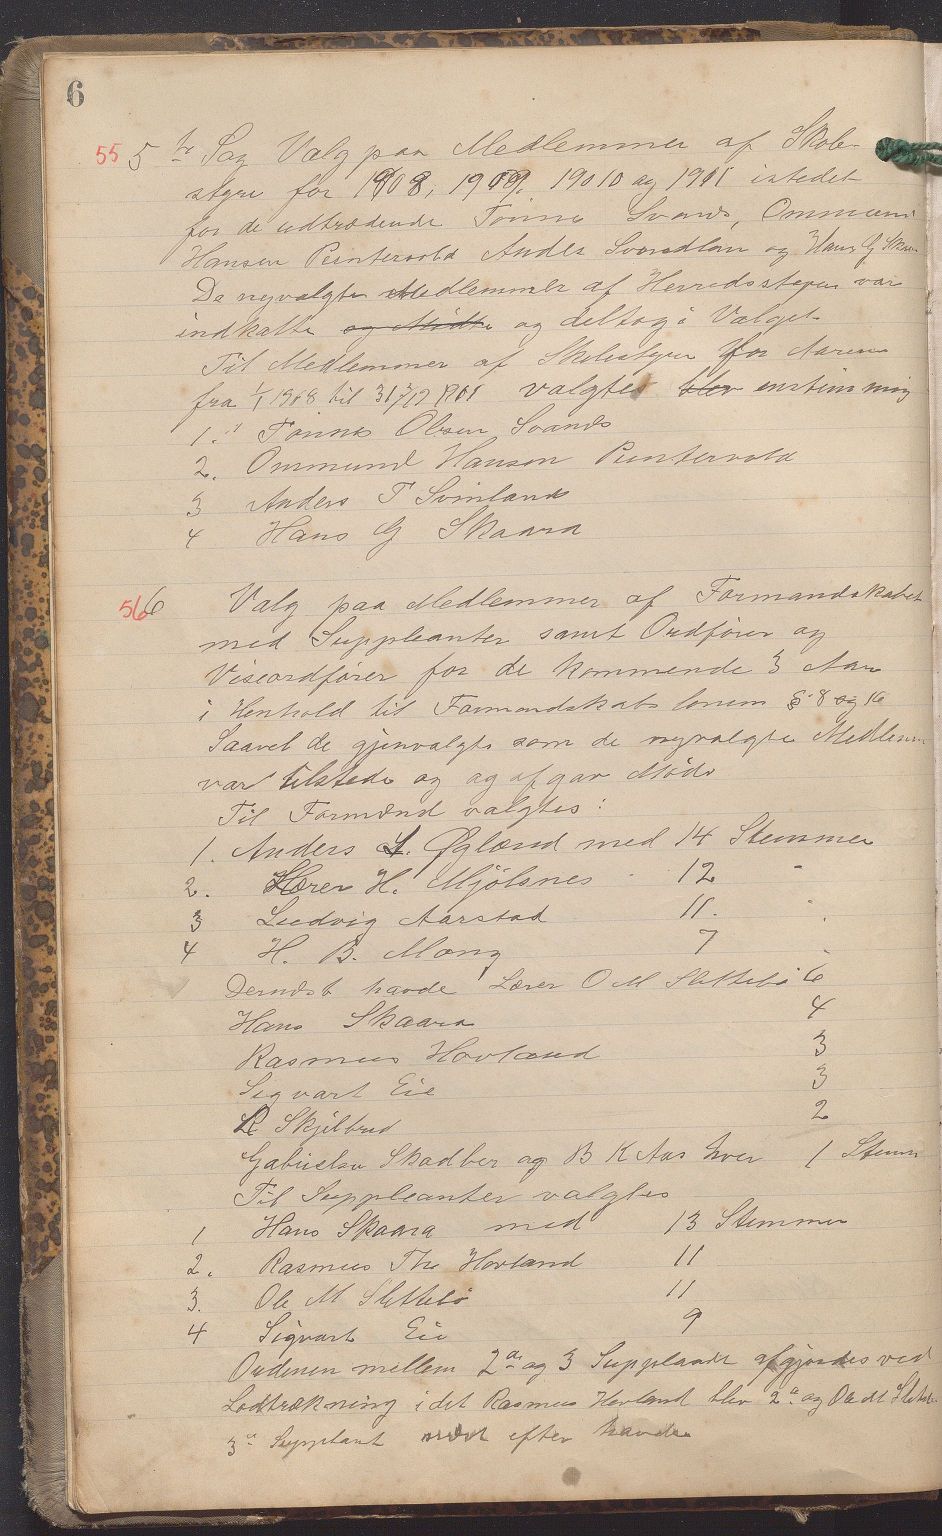 6
55 5te Sag Valg paa Medlemmer af Skole-
styre for 1908, 1909, 19010 og 1911 istedet
for de udtrædende Tønnes Svands, Ommund
Hansen Puntervold Anders Svindland og Hans G Skaar
De nyvalgte Medlemmer af Herredsstyren var
indkaldte og Mødte og deltog i Valget
Til Medlemmer af Skolestyre for Aarene
fra 1/1 1908 til 31/12 1911 valgtes blev enstimmig
1. Tønnes Olsen Svands
2. Ommund Hanson Puntervold
3 Anders T Svinland
4 Hans G Skaara
56 6 Valg paa Medlemmer af Formandskabet
med Suppleanter samt Ordfører og
Viseordfører for de kommende 3 Aar
i Henhold til Formandskabs lovens § 8 og 16
Saavel de gjenvalgte som de nyvalgte Medlem
var tilstede og og afgav Møde
Til Formænd valgtes:
1. Anders Øglænd med 14 Stemmer
2. Lærer H. Mjølsnes 12 "
3 Ludvig Aarstad 11. "
4 H. B. Mong 7 "
Dernæst havde Lærer O M Slettebø 6
Hans Skaara 4
Rasmus Hovland 3
Sigvart Eie 3
R Skjelbred 2
Gabrielsen Skadber og B K Aas hver 1 Stemm
Til Suppleanter valgtes
1 Hans Skaara med 13 Stemmer
2. Rasmus Th Hovland 11
3. Ole M Slettebø 11
4 Sigvart Eie 9
Ordenen mellem 2den og 3 Suppleant afgjordes ved
Lodtrækning i det Rasmus Hovland blev 2den og Ole M Slettebø
3die Supplant efter